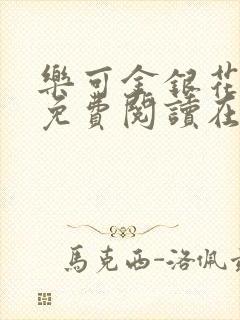 樂可金銀花
免費閱讀在
馬克西-洛佩